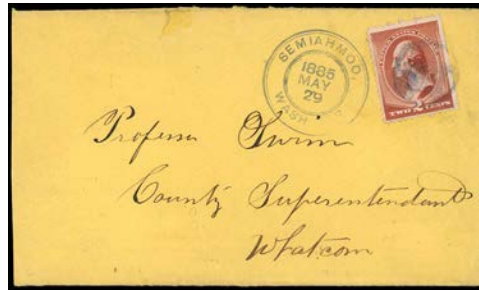 SEMIAHMOO,
1885
MAY
29
WASH
TWO 2 CENTS
Professor Swim
County Superentendant
Whatcom